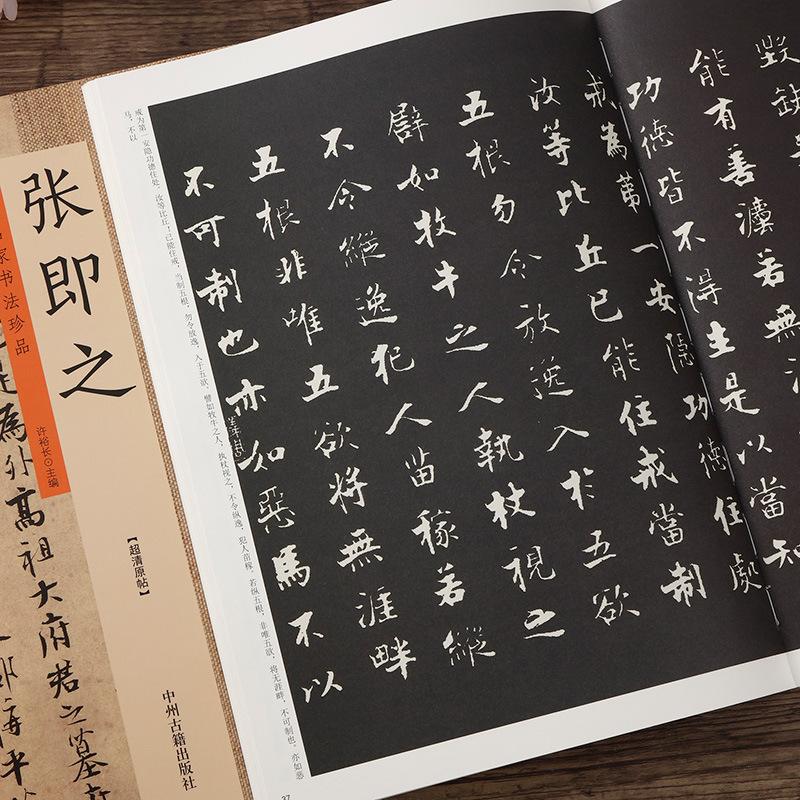 毀缺
能有善灋若無
功德皆不得生是以當知
戒為第一安隱功德住處
汝等比丘已能住戒當制
五根勿令放逸入於五欲
譬如牧牛之人執杖視之
不令縱逸犯人苗稼若縱
五根非唯五欲將無涯畔
不可制也亦如惡馬不以
戒为第一安隐功德住处。汝等比丘！已能住戒，当制五根，勿令放逸，入于五欲，譬如牧牛之人，执杖视之，不令纵逸，犯人苗稼，若纵五根，非唯五欲，将无涯畔，不可制也。亦如恶
马，不以
37
张即之
家书法珍品
许裕长⊙主编
【超清原帖】
中州古籍出版社
為外高祖大府君之墓